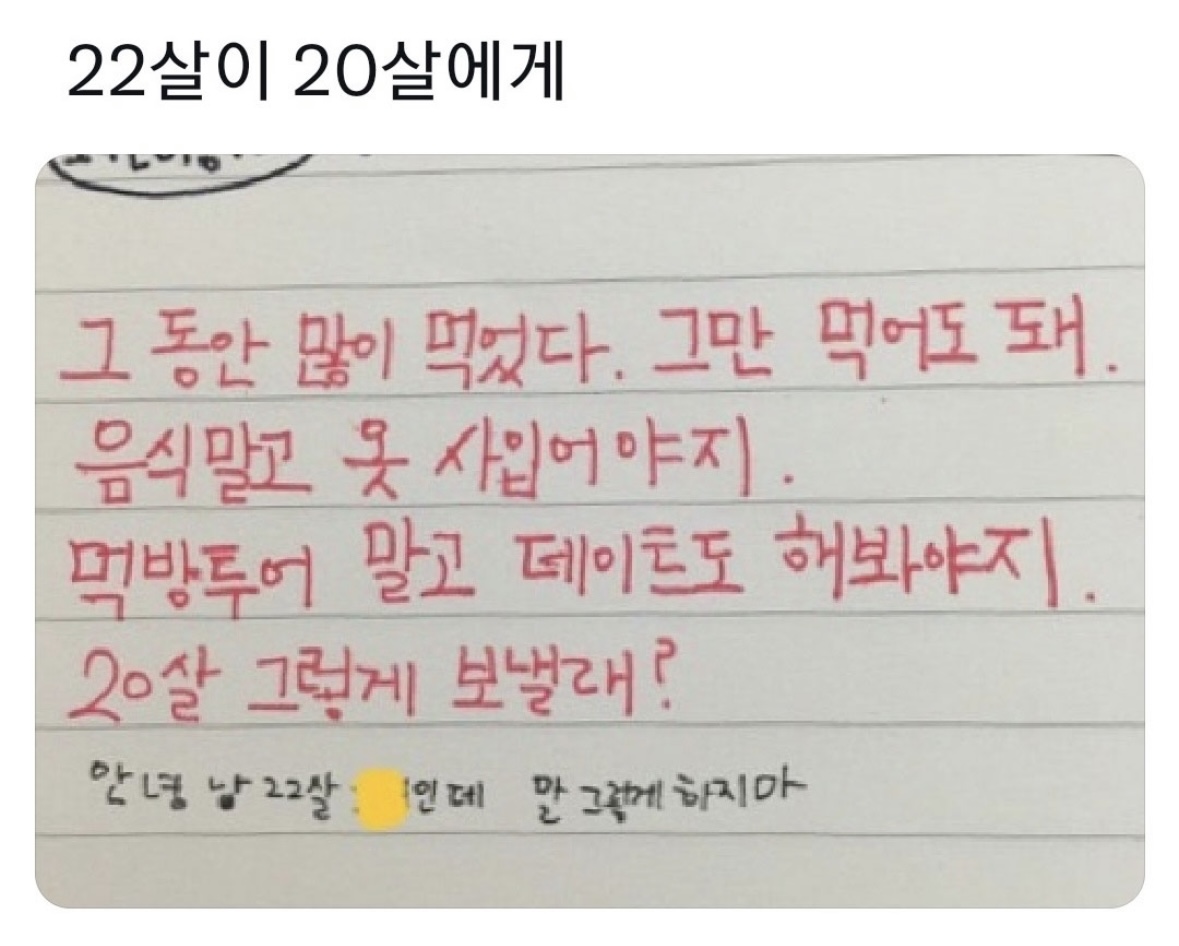 22살이 20살에게
그 동안 많이 먹었다. 그만 먹어도 돼.
음식말고 옷 사입어야지.
먹방투어 말고 데이트도 해봐야지.
20살 그렇게 보낼래?
안녕 난 22살 인데 말 그렇게 하지마